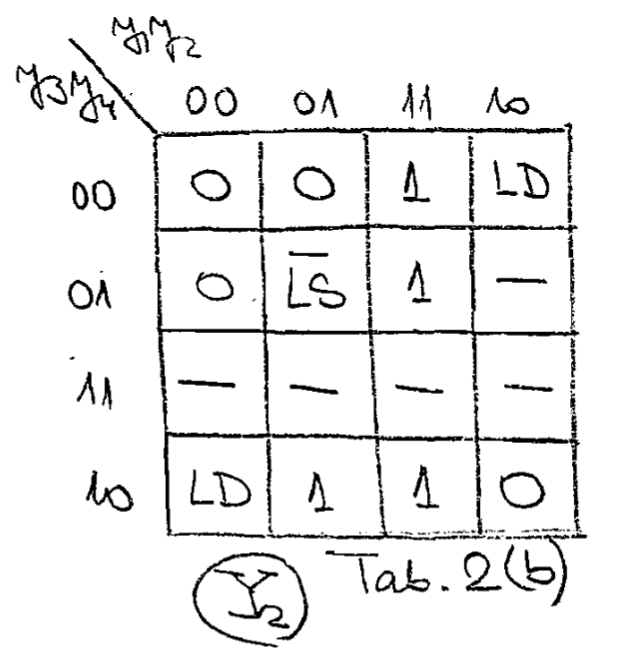 y1y2
y3y4
00 01 11 10
00 0 0 1 LD
01 0 L̅S̅ 1 —
11 — — — —
10 LD 1 1 0
Y2 Tab. 2(b)